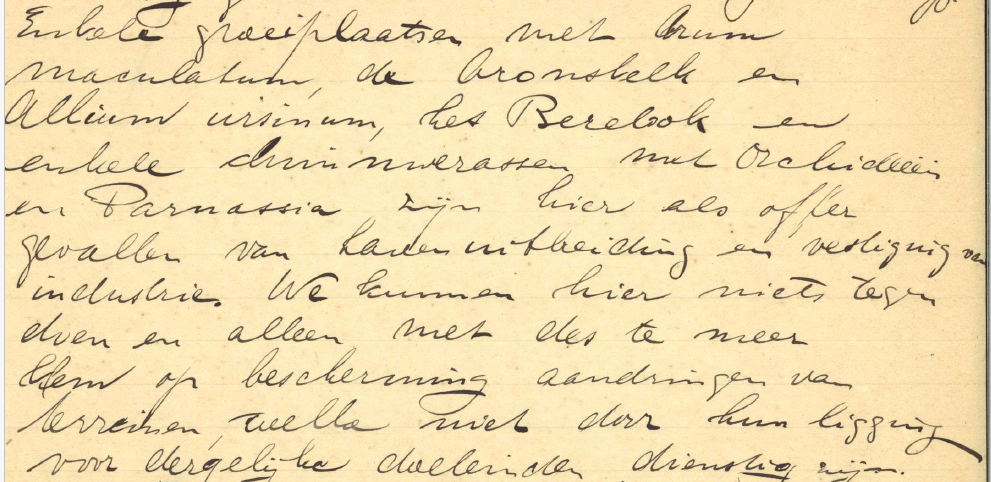 Enkele groeiplaatsen met Arum
maculatum, de Aronskelk en
Allium ursinum, het Berelook en
enkele duinmoerassen met Orchideeën
en Parnassia zijn hier als offer
gevallen van havenuitbreiding en vestiging van
industrie. We kunnen hier niets tegen
doen en alleen met des te meer
klem op bescherming aandringen van
terreinen, welke niet door hun ligging
voor dergelijke doeleinden dienstig zijn.